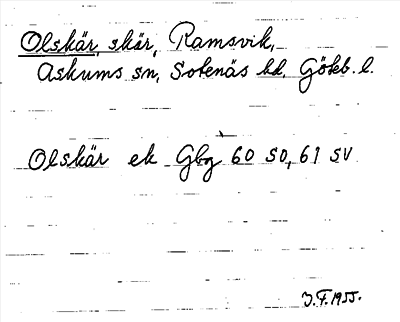 Olskär, skär, Ramsvik,
Askums sn, Sotenäs hd, Göteb. l.
Olskär ek Gbg 60 SO, 61 SV
J.F. 1955.